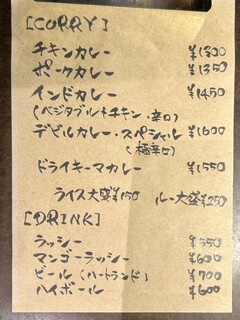 [CURRY]
チキンカレー ¥1300
ポークカレー ¥1350
インドカレー ¥1450
(ベジタブル+チキン・辛口)
デビルカレー・スペシャル ¥1600
(極辛口)
ドライキーマカレー ¥1550
ライス大盛¥150 ルー大盛¥250
[DRINK]
ラッシー ¥550
マンゴーラッシー ¥600
ビール (ハートランド) ¥700
ハイボール ¥600